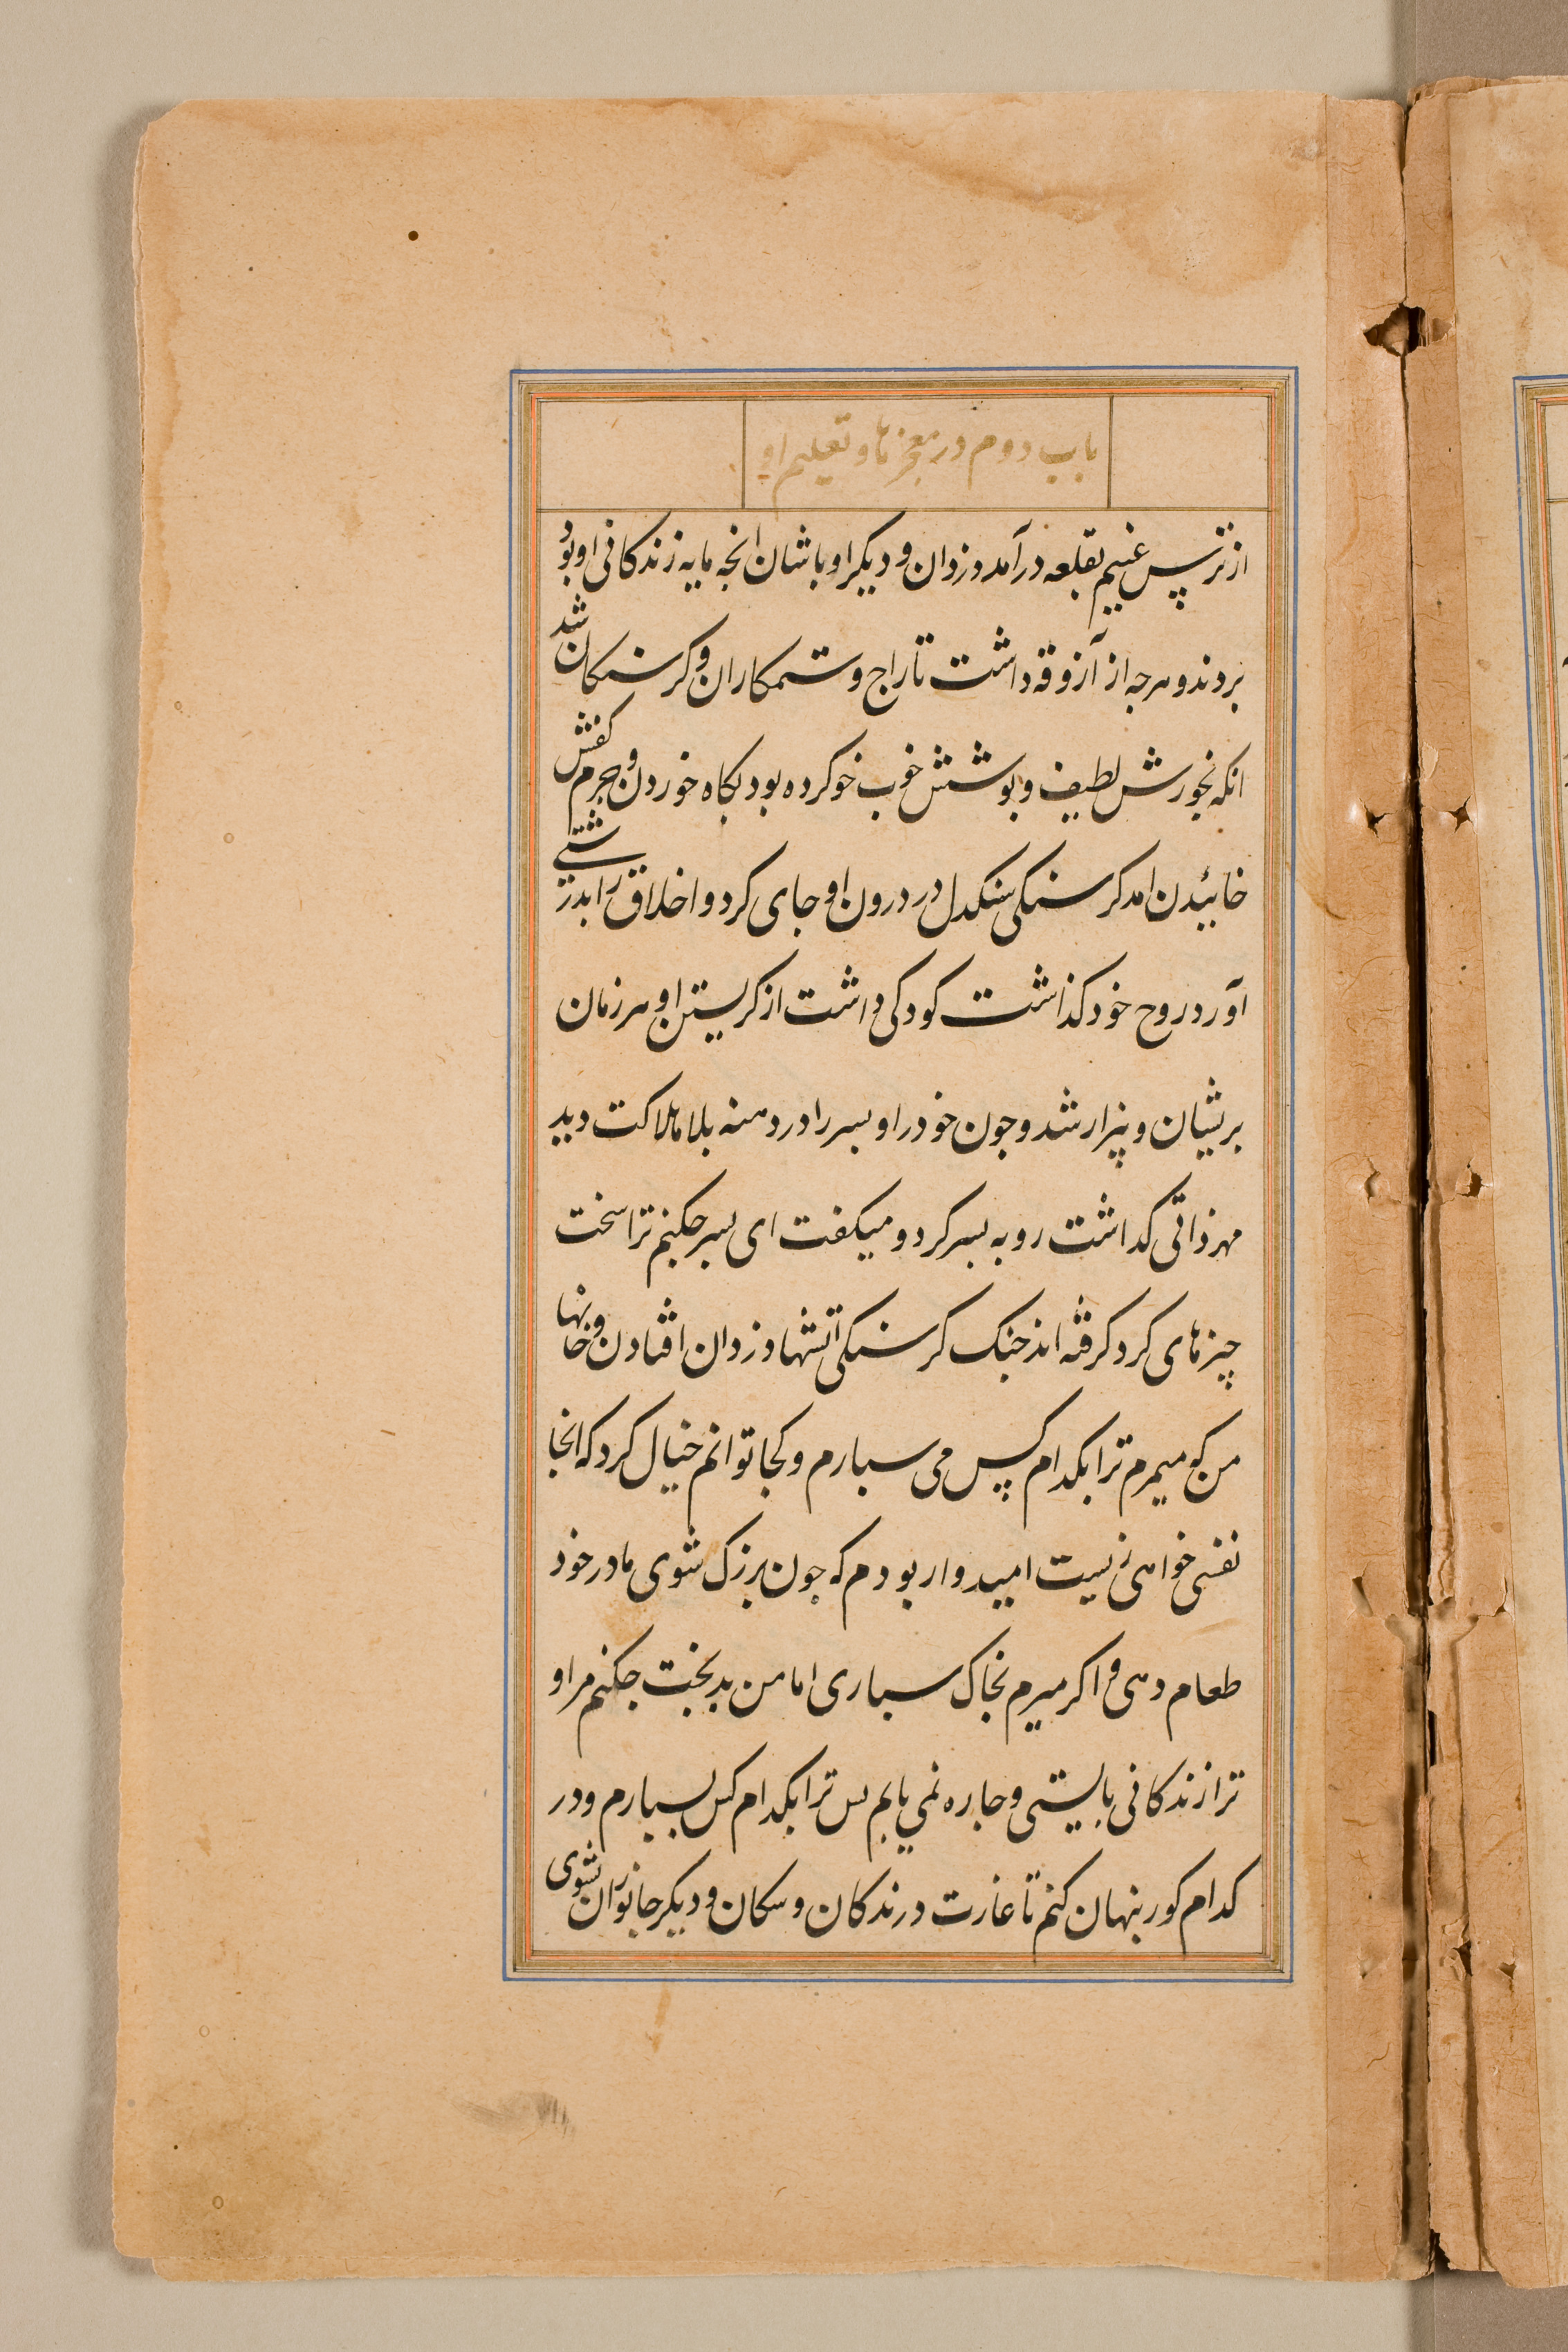 باب دوم در معجزها و تعلیم او
از ترس غنیم بقلعه درآمد دزدان و دیکر اوباشان انجه مایه زندکانی او بود
بردند و هرجه از آزوقه داشت تاراج ستمکاران و کرسنکان شد
انکه بخورش لطیف و بوشش خوب خو کرده بود بکاه خوردن و جرم کفش
خائیدن امد کرسنکی سنکدل در درون او جای کرد و اخلاق را بدرشتی
آورد روح خود کذاشت کودکی داشت از کریستن او هر زمان
بریشان و بیزار شد و جون خود را و بسر را در دهنه بلا هلاکت دید
مهر ذاتی کداشت رو به بسر کرد و میکفت ای بسر جکنم ترا سخت
چیزهای کرد کرفته اند جنک کرسنکی آتشها دزدان افتادن خانها و
من کو میمرم ترا بکدام کس می سبارم و کجا توانم خیال کرد که انجا
نفسی خواهی زیست امیدوار بودم که جون بزرک شوی مادر خود
طعام دهی و اکر میرم بخاک سباری اما من بدبخت جکنم مرا و
ترا زندکانی بایستی و جاره نمی یابم بس ترا بکدام کس بسبارم و در
کدام کور بنهان کنم تا غارت درندکان و سکان و دیکر جانوران نشوی